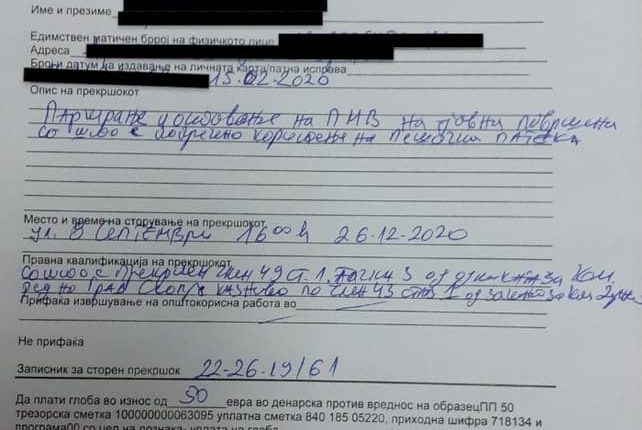 Име и презиме
Единствен матичен број на физичкото лице
Адреса
Број и датум на издавање на личната карта/патна исправа
15.02-2020
Опис на прекршокот
Паркирање и опстојување на ПМВ на јавни површини
со што е попречено користење на пешачка патека
Место и време на сторување на прекршокот
ул. 8 Септември 16 00 h 26-12-2020
Правна квалификација на прекршокот
со што е прекршен член 49 ст. 1. точка 3 од за ком.
ред на Град Скопје казниво по член 43 став 1 од за ком
Прифаќа извршување на општокорисна работа во
Не прифаќа
Записник за сторен прекршок 22-26-19/61
Да плати глоба во износ од 50 евра во денарска против вредност на образецПП 50
трезорска сметка 100000000063095 уплатна сметка 840 185 05220, приходна шифра 718134 и
програма00 со цел на дознака- уплата на глоба